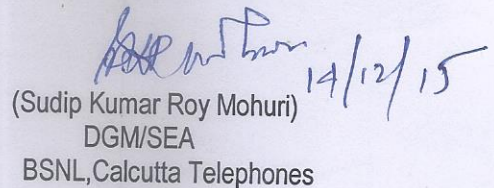 14/12/15
(Sudip Kumar Roy Mohuri)
DGM/SEA
BSNL,Calcutta Telephones